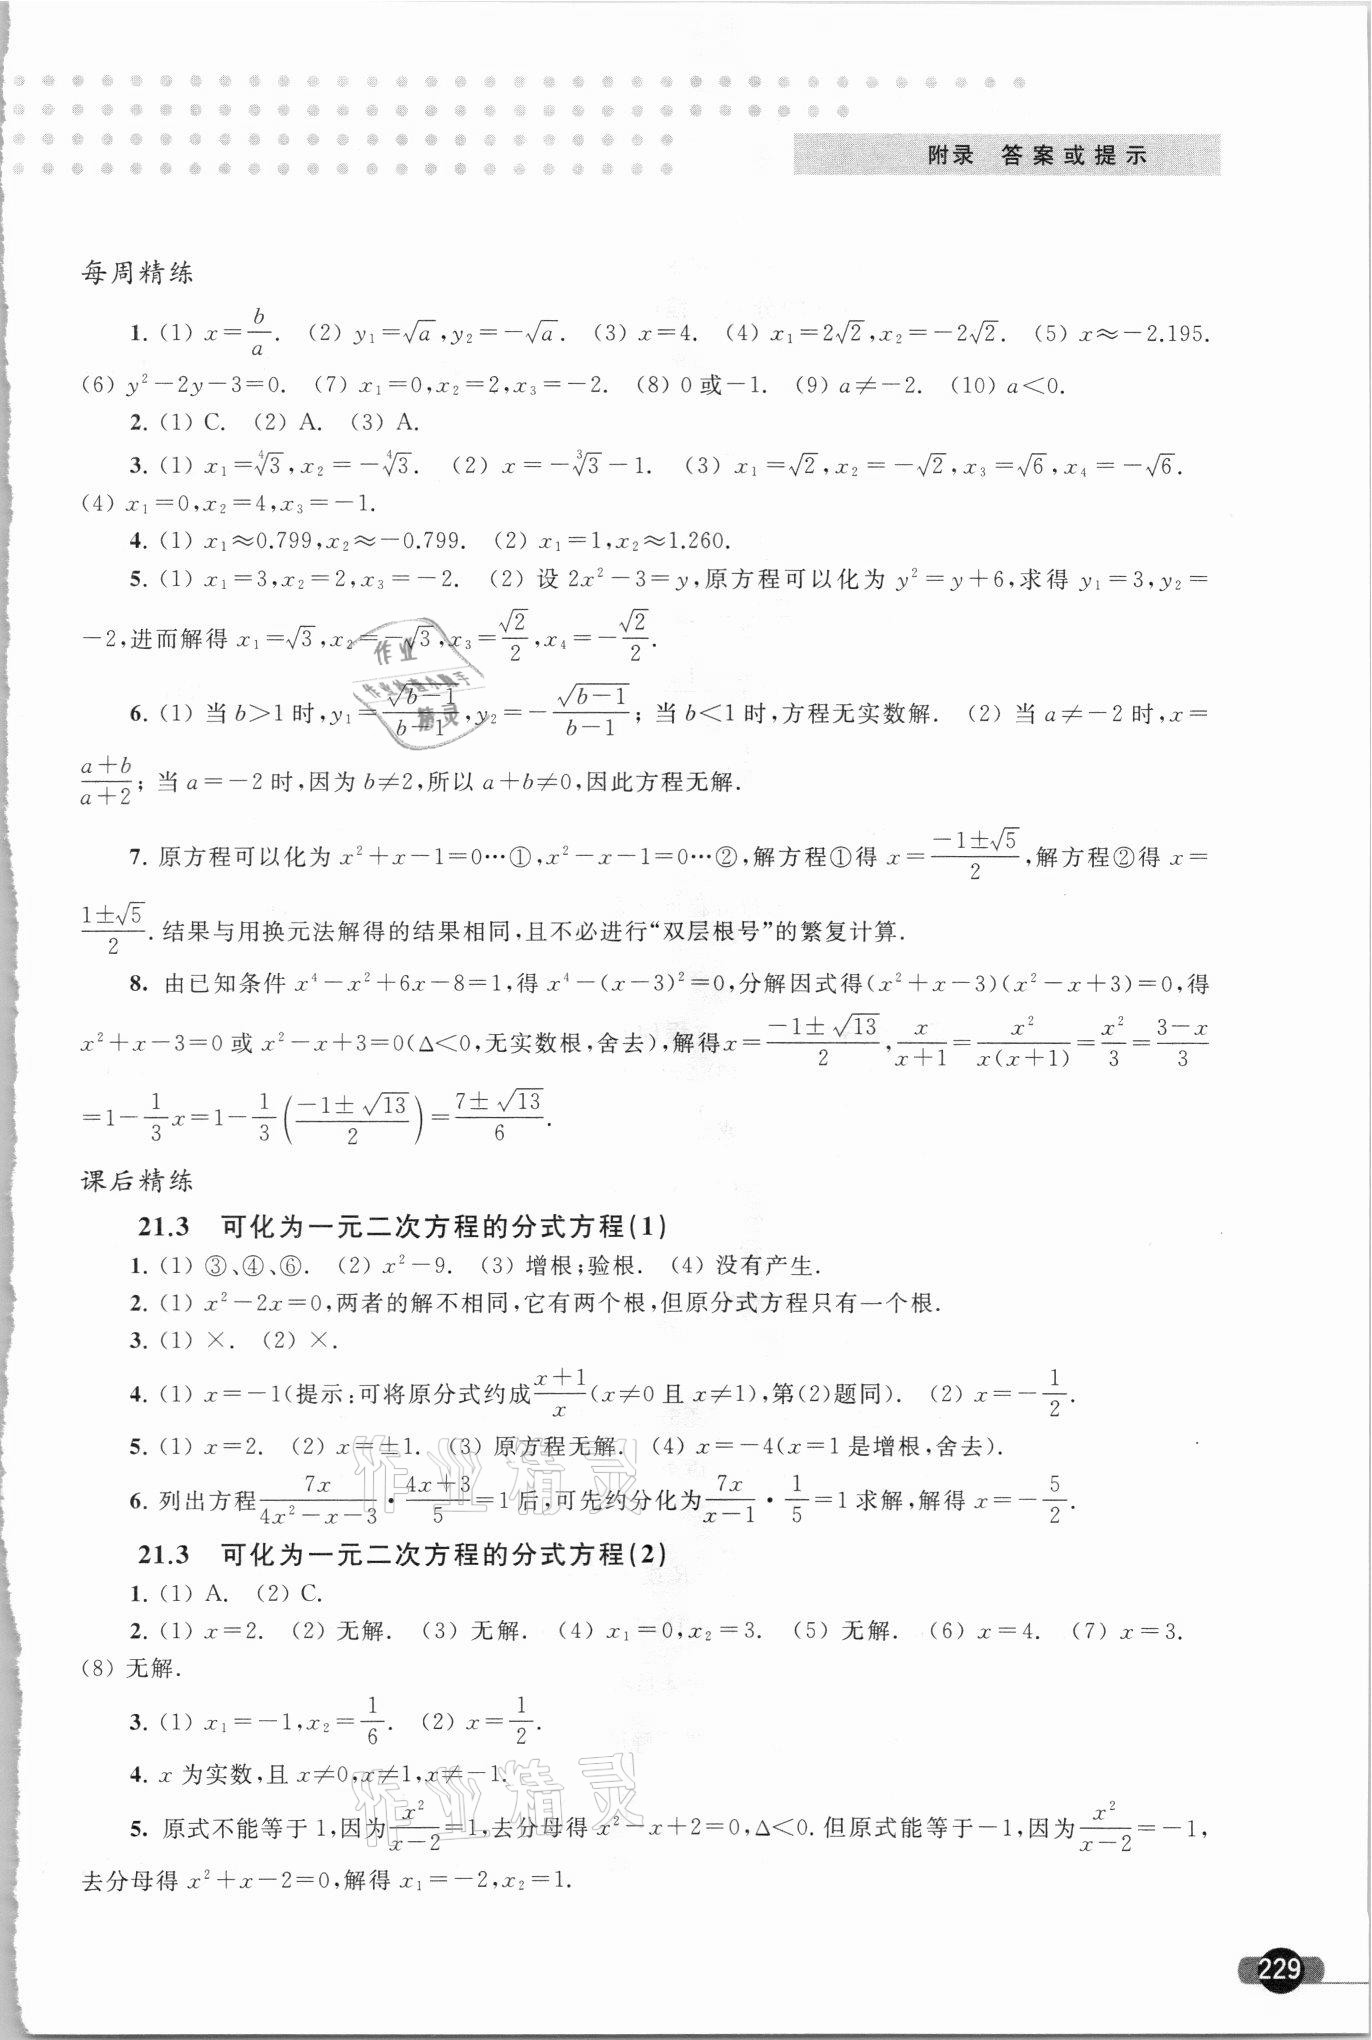 附录 答案或提示
每周精练
1. (1) x=b/a. (2) y₁=√a,y₂=-√a. (3) x=4. (4) x₁=2√2,x₂=-2√2. (5) x≈-2.195.
(6) y²-2y-3=0. (7) x₁=0,x₂=2,x₃=-2. (8) 0或-1. (9) a≠-2. (10) a<0.
2. (1) C. (2) A. (3) A.
3. (1) x₁=⁴√3,x₂=-⁴√3. (2) x=-³√3-1. (3) x₁=√2,x₂=-√2,x₃=√6,x₄=-√6.
(4) x₁=0,x₂=4,x₃=-1.
4. (1) x₁≈0.799,x₂≈-0.799. (2) x₁=1,x₂≈1.260.
5. (1) x₁=3,x₂=2,x₃=-2. (2) 设2x²-3=y,原方程可以化为y²=y+6,求得y₁=3,y₂=
-2,进而解得x₁=√3,x₂=-√3,x₃=√2/2,x₄=-√2/2.
6. (1) 当b>1时,y₁=√(b-1)/(b-1),y₂=-√(b-1)/(b-1);当b<1时,方程无实数解. (2) 当a≠-2时,x=
(a+b)/(a+2);当a=-2时,因为b≠2,所以a+b≠0,因此方程无解.
7. 原方程可以化为x²+x-1=0…①,x²-x-1=0…②,解方程①得x=(-1±√5)/2,解方程②得x=
(1±√5)/2.结果与用换元法解得的结果相同,且不必进行“双层根号”的繁复计算.
8. 由已知条件x⁴-x²+6x-8=1,得x⁴-(x-3)²=0,分解因式得(x²+x-3)(x²-x+3)=0,得
x²+x-3=0或x²-x+3=0(Δ<0,无实数根,舍去),解得x=(-1±√13)/2,x/(x+1)=x²/(x(x+1))=x²/3=(3-x)/3
=1-1/3x=1-1/3((-1±√13)/2)=(7±√13)/6.
课后精练
21.3 可化为一元二次方程的分式方程(1)
1. (1) ③、④、⑥. (2) x²-9. (3) 增根;验根. (4) 没有产生.
2. (1) x²-2x=0,两者的解不相同,它有两个根,但原分式方程只有一个根.
3. (1) ×. (2) ×.
4. (1) x=-1(提示:可将原分式约成(x+1)/x(x≠0且x≠1),第(2)题同). (2) x=-1/2.
5. (1) x=2. (2) x=±1. (3) 原方程无解. (4) x=-4(x=1是增根,舍去).
6. 列出方程7x/(4x²-x-3)·(4x+3)/5=1后,可先约分化为7x/(x-1)·1/5=1求解,解得x=-5/2.
21.3 可化为一元二次方程的分式方程(2)
1. (1) A. (2) C.
2. (1) x=2. (2) 无解. (3) 无解. (4) x₁=0,x₂=3. (5) 无解. (6) x=4. (7) x=3.
(8) 无解.
3. (1) x₁=-1,x₂=1/6. (2) x=1/2.
4. x为实数,且x≠0,x≠1,x≠-1.
5. 原式不能等于1,因为x²/(x-2)=1,去分母得x²-x+2=0,Δ<0.但原式能等于-1,因为x²/(x-2)=-1,
去分母得x²+x-2=0,解得x₁=-2,x₂=1.
229
作业
精灵
作业精灵
作业精灵